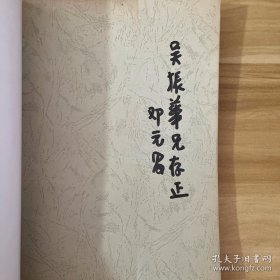 吴振华兄存正
邓元
孔夫子旧书网